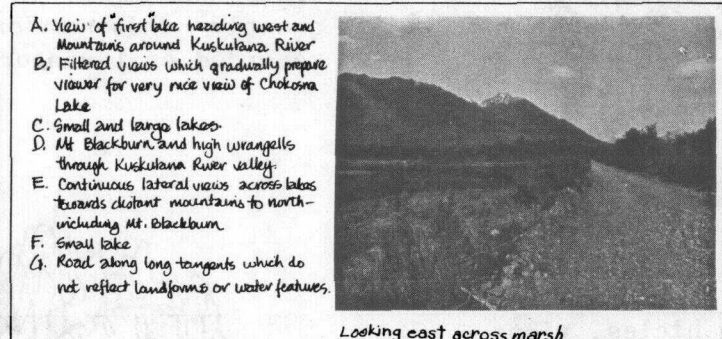 A. View of "first" lake heading west and
Mountains around Kuskulana River
B. Filtered views which gradually prepare
viewer for very nice view of Chokosna
Lake
C. Small and large lakes.
D. Mt Blackburn and high wrangells
through Kuskulana River valley.
E. Continuous lateral views across lakes
towards distant mountains to north-
including Mt. Blackburn
F. Small lake
G. Road along long tangents which do
not reflect landforms or water features.
Looking east across marsh